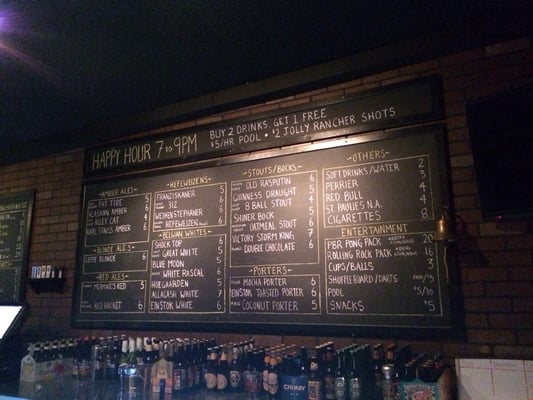 HAPPY HOUR 7 TO 9PM
BUY 2 DRINKS, GET 1 FREE
$5/HR POOL • $2 JOLLY RANCHER SHOTS
AMBER ALES
FAT TIRE 5
ALASKAN AMBER 6
ALLEY CAT 6
KARL STAUSS AMBER 6
BLONDE ALES
LEFFE BLONDE 6
RED ALES
MERMAID'S RED 5
RED ROCKET 6
HEFEWEIZENS
FRANZISKANER 6
312 5
WEIHENSTEPHANER 6
HEFEWEIZEN 6
BELGIAN WHITES
SHOCK TOP 5
GREAT WHITE 5
BLUE MOON 5
WHITE RASCAL 6
HOEGAARDEN 5
ALLAGASH WHITE 7
EINSTOK WHITE 6
STOUTS/BOCKS
OLD RASPUTIN 6
GUINNESS DRAUGHT 5
8 BALL STOUT 5
SHINER BOCK 5
OATMEAL STOUT 6
VICTORY STORM KING 7
DOUBLE CHOCOLATE 6
PORTERS
MOCHA PORTER 6
EINSTOK TOASTED PORTER 6
COCONUT PORTER 5
OTHERS
SOFT DRINKS/WATER 2
PERRIER 3
RED BULL 4
ST PAULIE'S N.A. 4
CIGARETTES 8
ENTERTAINMENT
PBR PONG PACK 20
ROLLING ROCK PACK 16
CUPS/BALLS 3
SHUFFLEBOARD/DARTS FREE/5
POOL $5/10
SNACKS $5